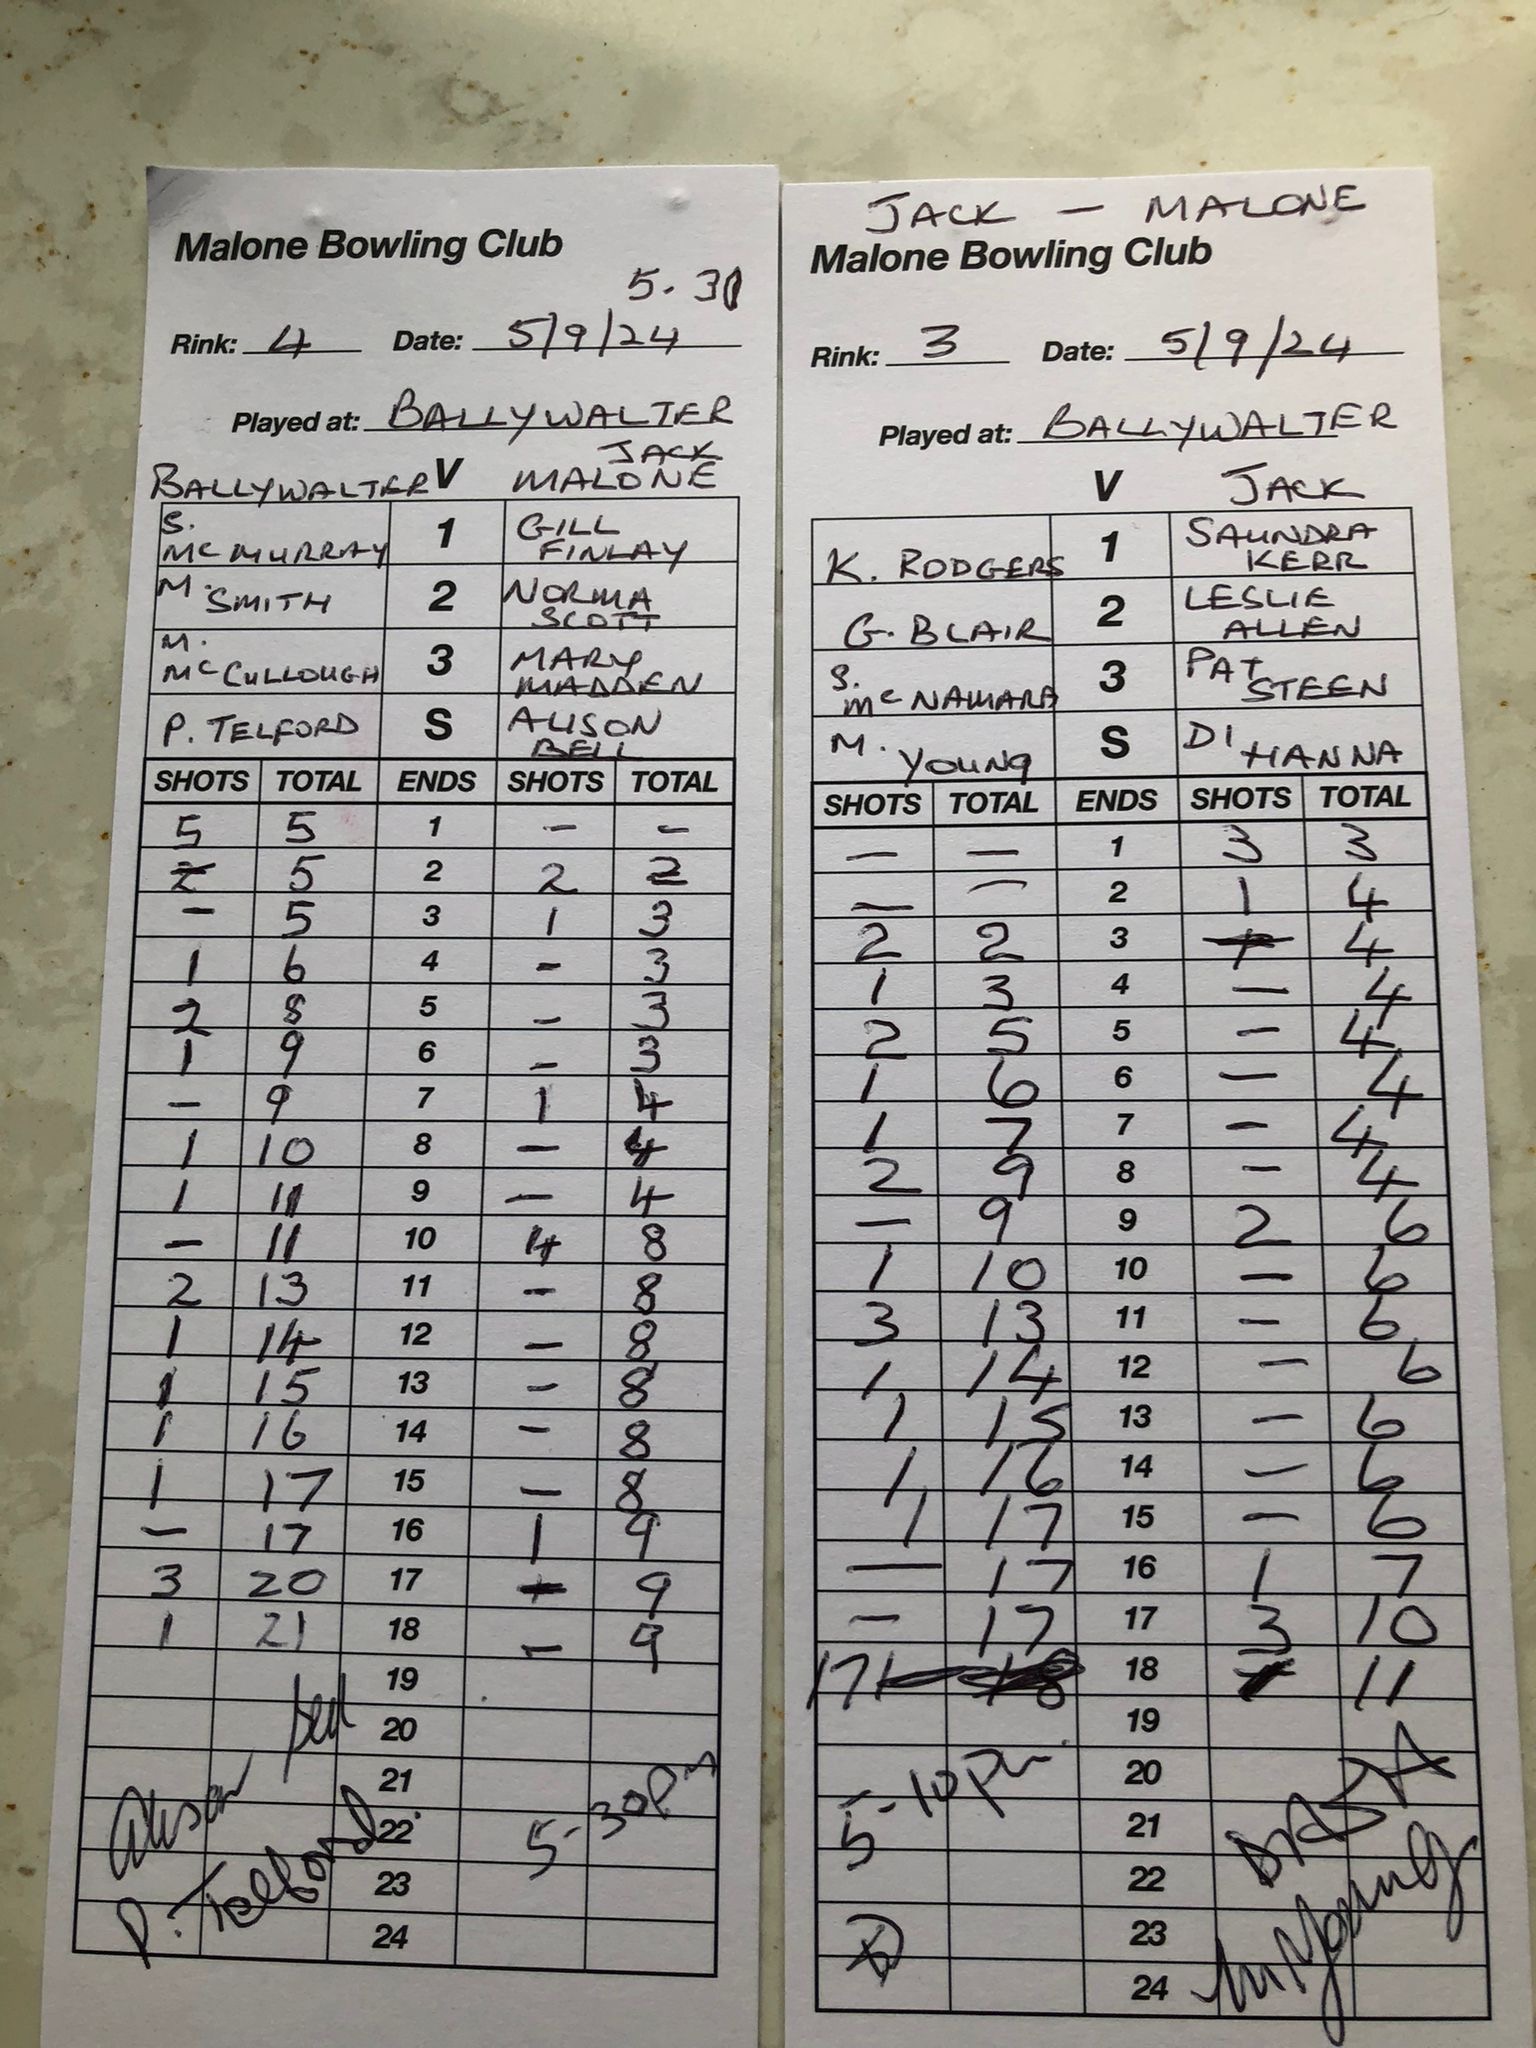 Malone Bowling Club
5.30
Rink: 4 Date: 5/9/24
Played at: BALLYWALTER
JACK
BALLYWALTER V MALONE
S. McMURRAY 1 GILL FINLAY
M. SMITH 2 NORMA SCOTT
M. McCULLOUGH 3 MARY MADDEN
P. TELFORD S ALISON BELL
SHOTS TOTAL ENDS SHOTS TOTAL
5 5 1 - -
5 2 2 2
- 5 3 1 3
1 6 4 - 3
2 8 5 - 3
1 9 6 - 3
- 9 7 1 4
1 10 8 - 4
1 11 9 - 4
- 11 10 4 8
2 13 11 - 8
1 14 12 - 8
1 15 13 - 8
1 16 14 - 8
1 17 15 - 8
- 17 16 1 9
3 20 17 - 9
1 21 18 - 9
19
20
21
22
23
24
Alison Bell
P. Telford
5-30PM
JACK - MALONE
Malone Bowling Club
Rink: 3 Date: 5/9/24
Played at: BALLYWALTER
V JACK
K. RODGERS 1 SAUNDRA KERR
G. BLAIR 2 LESLIE ALLEN
S. McNAMARA 3 PAT STEEN
M. YOUNG S DI HANNA
SHOTS TOTAL ENDS SHOTS TOTAL
- - 1 3 3
- - 2 1 4
2 2 3 - 4
1 3 4 - 4
2 5 5 - 4
1 6 6 - 4
1 7 7 - 4
2 9 8 - 4
- 9 9 2 6
1 10 10 - 6
3 13 11 - 6
1 14 12 - 6
1 15 13 - 6
1 16 14 - 6
1 17 15 - 6
- 17 16 1 7
- 17 17 3 10
17 18 11
19
20
21
22
23
24
5-10pm
M Young